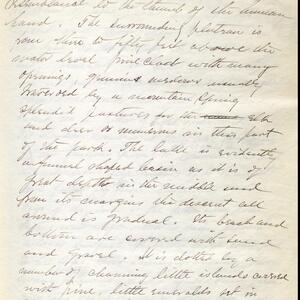 resemblance to the thumb of the human
hand. The surrounding plateau is
from three to fifty feet above the
water level pine clad with many
openings, genuine meadows usually
traversed by a mountain spring
splendid pastures for the elk
and deer so numerous in this part
of the park. The lake is evidently
a funnel shaped basin as it is of
great depths in the middle and
from its margins the descent all
around is gradual. Its beach and
bottom are covered with sand
and gravel. It is dotted by a
number of charming little islands covered
with pine, little emeralds set in